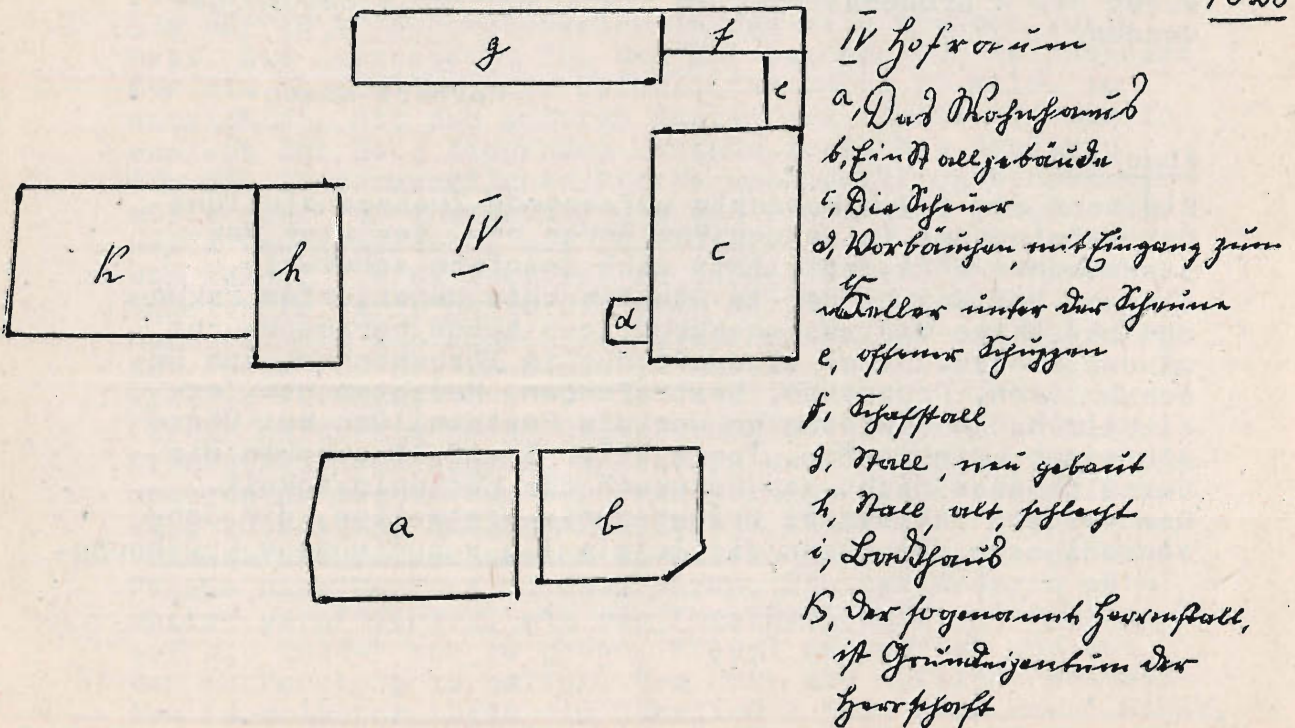 1828
g
f
e
k
h
IV
c
d
a
b
IV Hofraum
a, Das Wohnhaus
b, Ein Stallgebäude
c, Die Scheuer
d, Vorbäuchen, mit Eingang zum
Keller unter der Scheune
e, offener Schuppen
f, Schafstall
g, Stall, neu gebaut
h, Stall, alt, schlecht
i, Backhaus
K, der sogenannte Herrenstall,
ist Grundeigentum der
Herrschaft